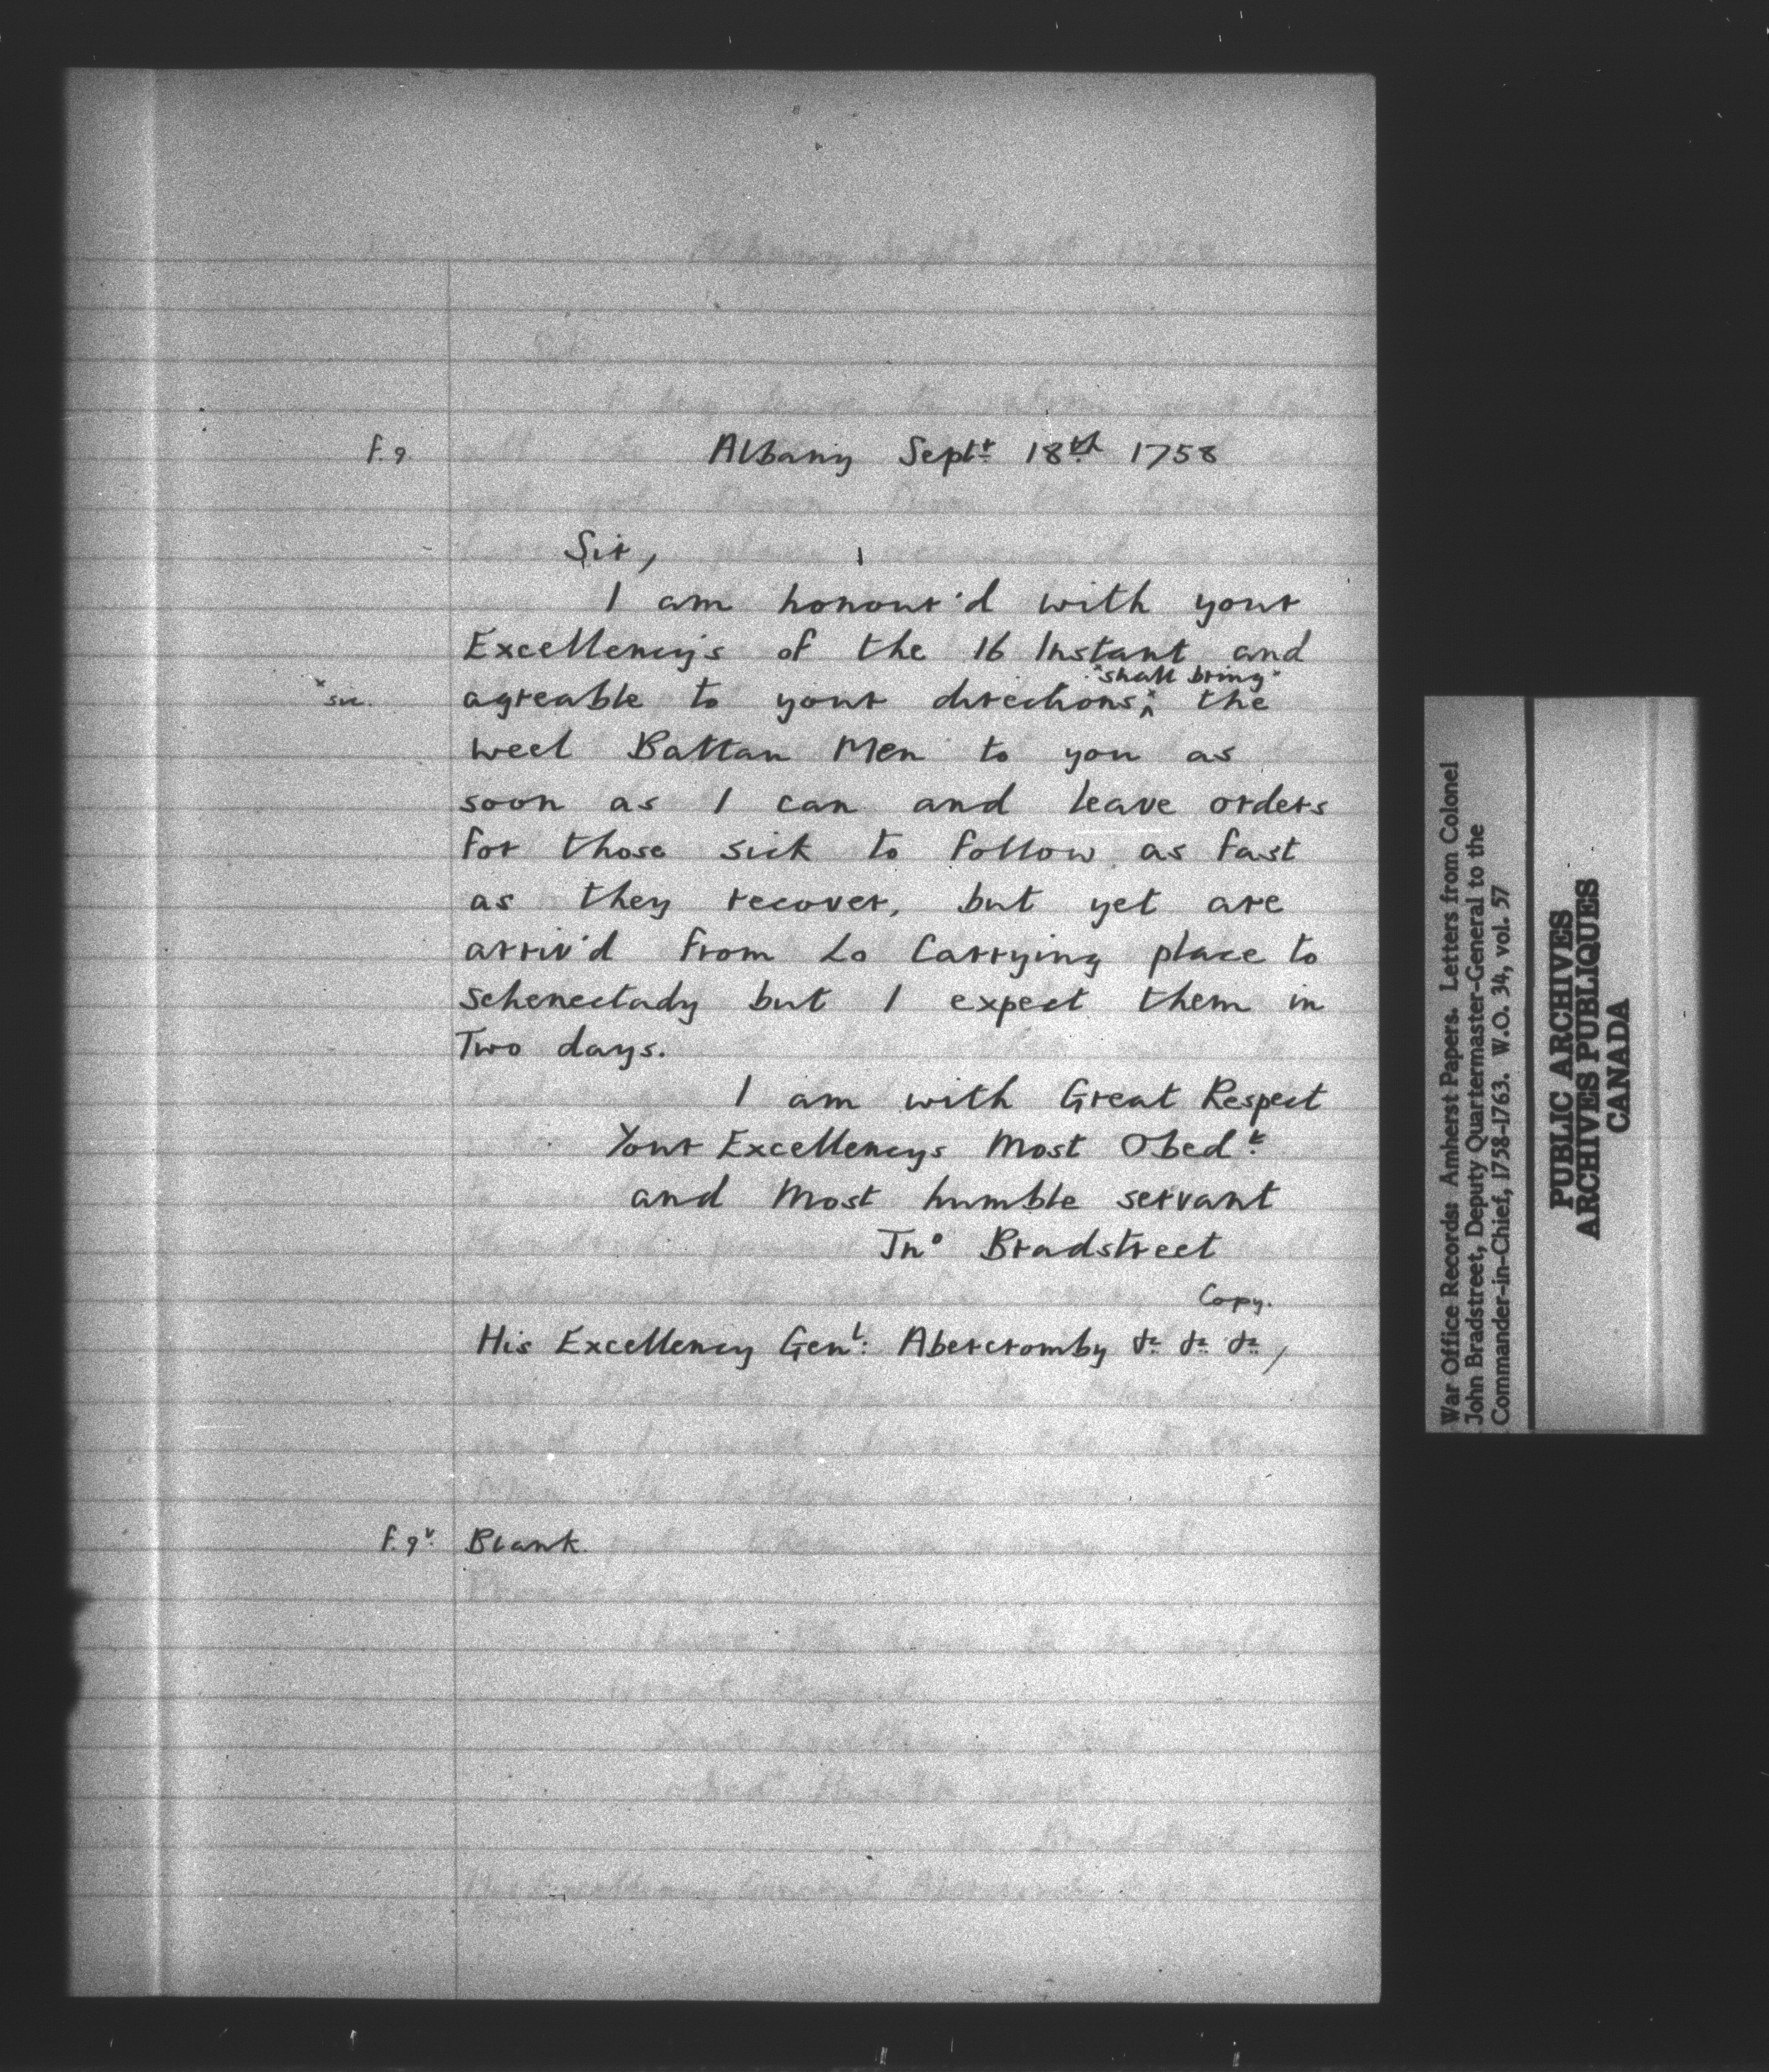 f. 9. Albany Septr 18th 1758
Sir,
I am honour'd with your
Excellency's of the 16 Instant and
"shall bring"
x sic. agreable to your directions x ^ the
weel Battau Men to you as
soon as I can and leave orders
for those sick to follow as fast
as they recover, but yet are
arriv'd from Lo Carrying place to
Schenectady but I expect them in
Two days.
I am with Great Respect
Your Excellencys Most Obedt
and Most humble servant
Jno Bradstreet
Copy.
His Excellency Genl: Abercromby &c &c &c,
f. 9v. Blank.
War Office Records: Amherst Papers. Letters from Colonel
John Bradstreet, Deputy Quartermaster-General to the
Commander-in-Chief, 1758-1763. W.O. 34, vol. 57
PUBLIC ARCHIVES
ARCHIVES PUBLIQUES
CANADA